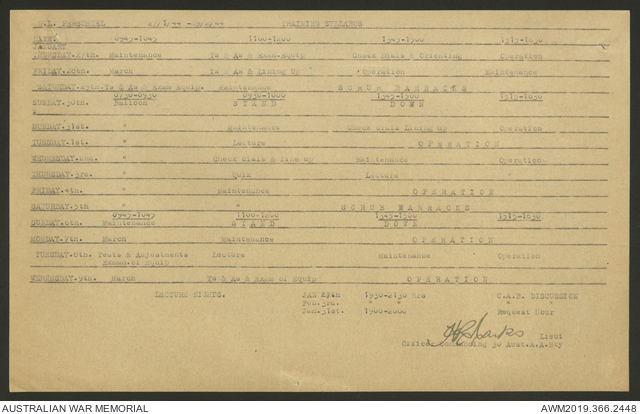 S.L. PERSONNEL TRAINING SYLLABUS
DATE. 0945-1045 1100-1200 1345-1500 1515-1630
JANUARY
THURSDAY.27th. Maintenance Ts & As & Exam.Equip Check Dials & Orienting Operation
FRIDAY.28th. March Ts & As & Lining Up Operation Maintenance
SATURDAY.29th. Ts & As & Exam Equip. Maintenance SCRUB BARRACKS
0730-0930 0930-1000 1345-1500 1515-1630
SUNDAY.30th. Balloon STAND DOWN
MONDAY.31st. " Maintenance Check dials Lining up Operation
TUESDAY.1st. " Lecture OPERATION
WEDNESDAY.2nd. " Check dials & line up Maintenance Operation
THURSDAY.3rd. " Quiz Lecture "
FRIDAY.4th. " Maintenance OPERATION
SATURDAY.5th " SCRUB BARRACKS
0945-1045 1100-1200 1345-1500 1515-1630
SUNDAY.6th. Maintenance STAND DOWN
MONDAY.7th. March Maintenance OPERATION
TUESDAY.8th. Tests & Adjustments Lecture Maintenance Operation
Exam.of Equip
WEDNESDAY.9th. March Ts & As & Exam of Equip OPERATION
LECTURE NIGHTS. JAN 27th 1930-2130 hrs C.A.B. DISCUSSION
Feb.3rd. " " "
Jan.31st. 1900-2000 Request Hour
Lieut
Officer Commanding Aust.A.A.Bty
AUSTRALIAN WAR MEMORIAL AWM2019.366.2448